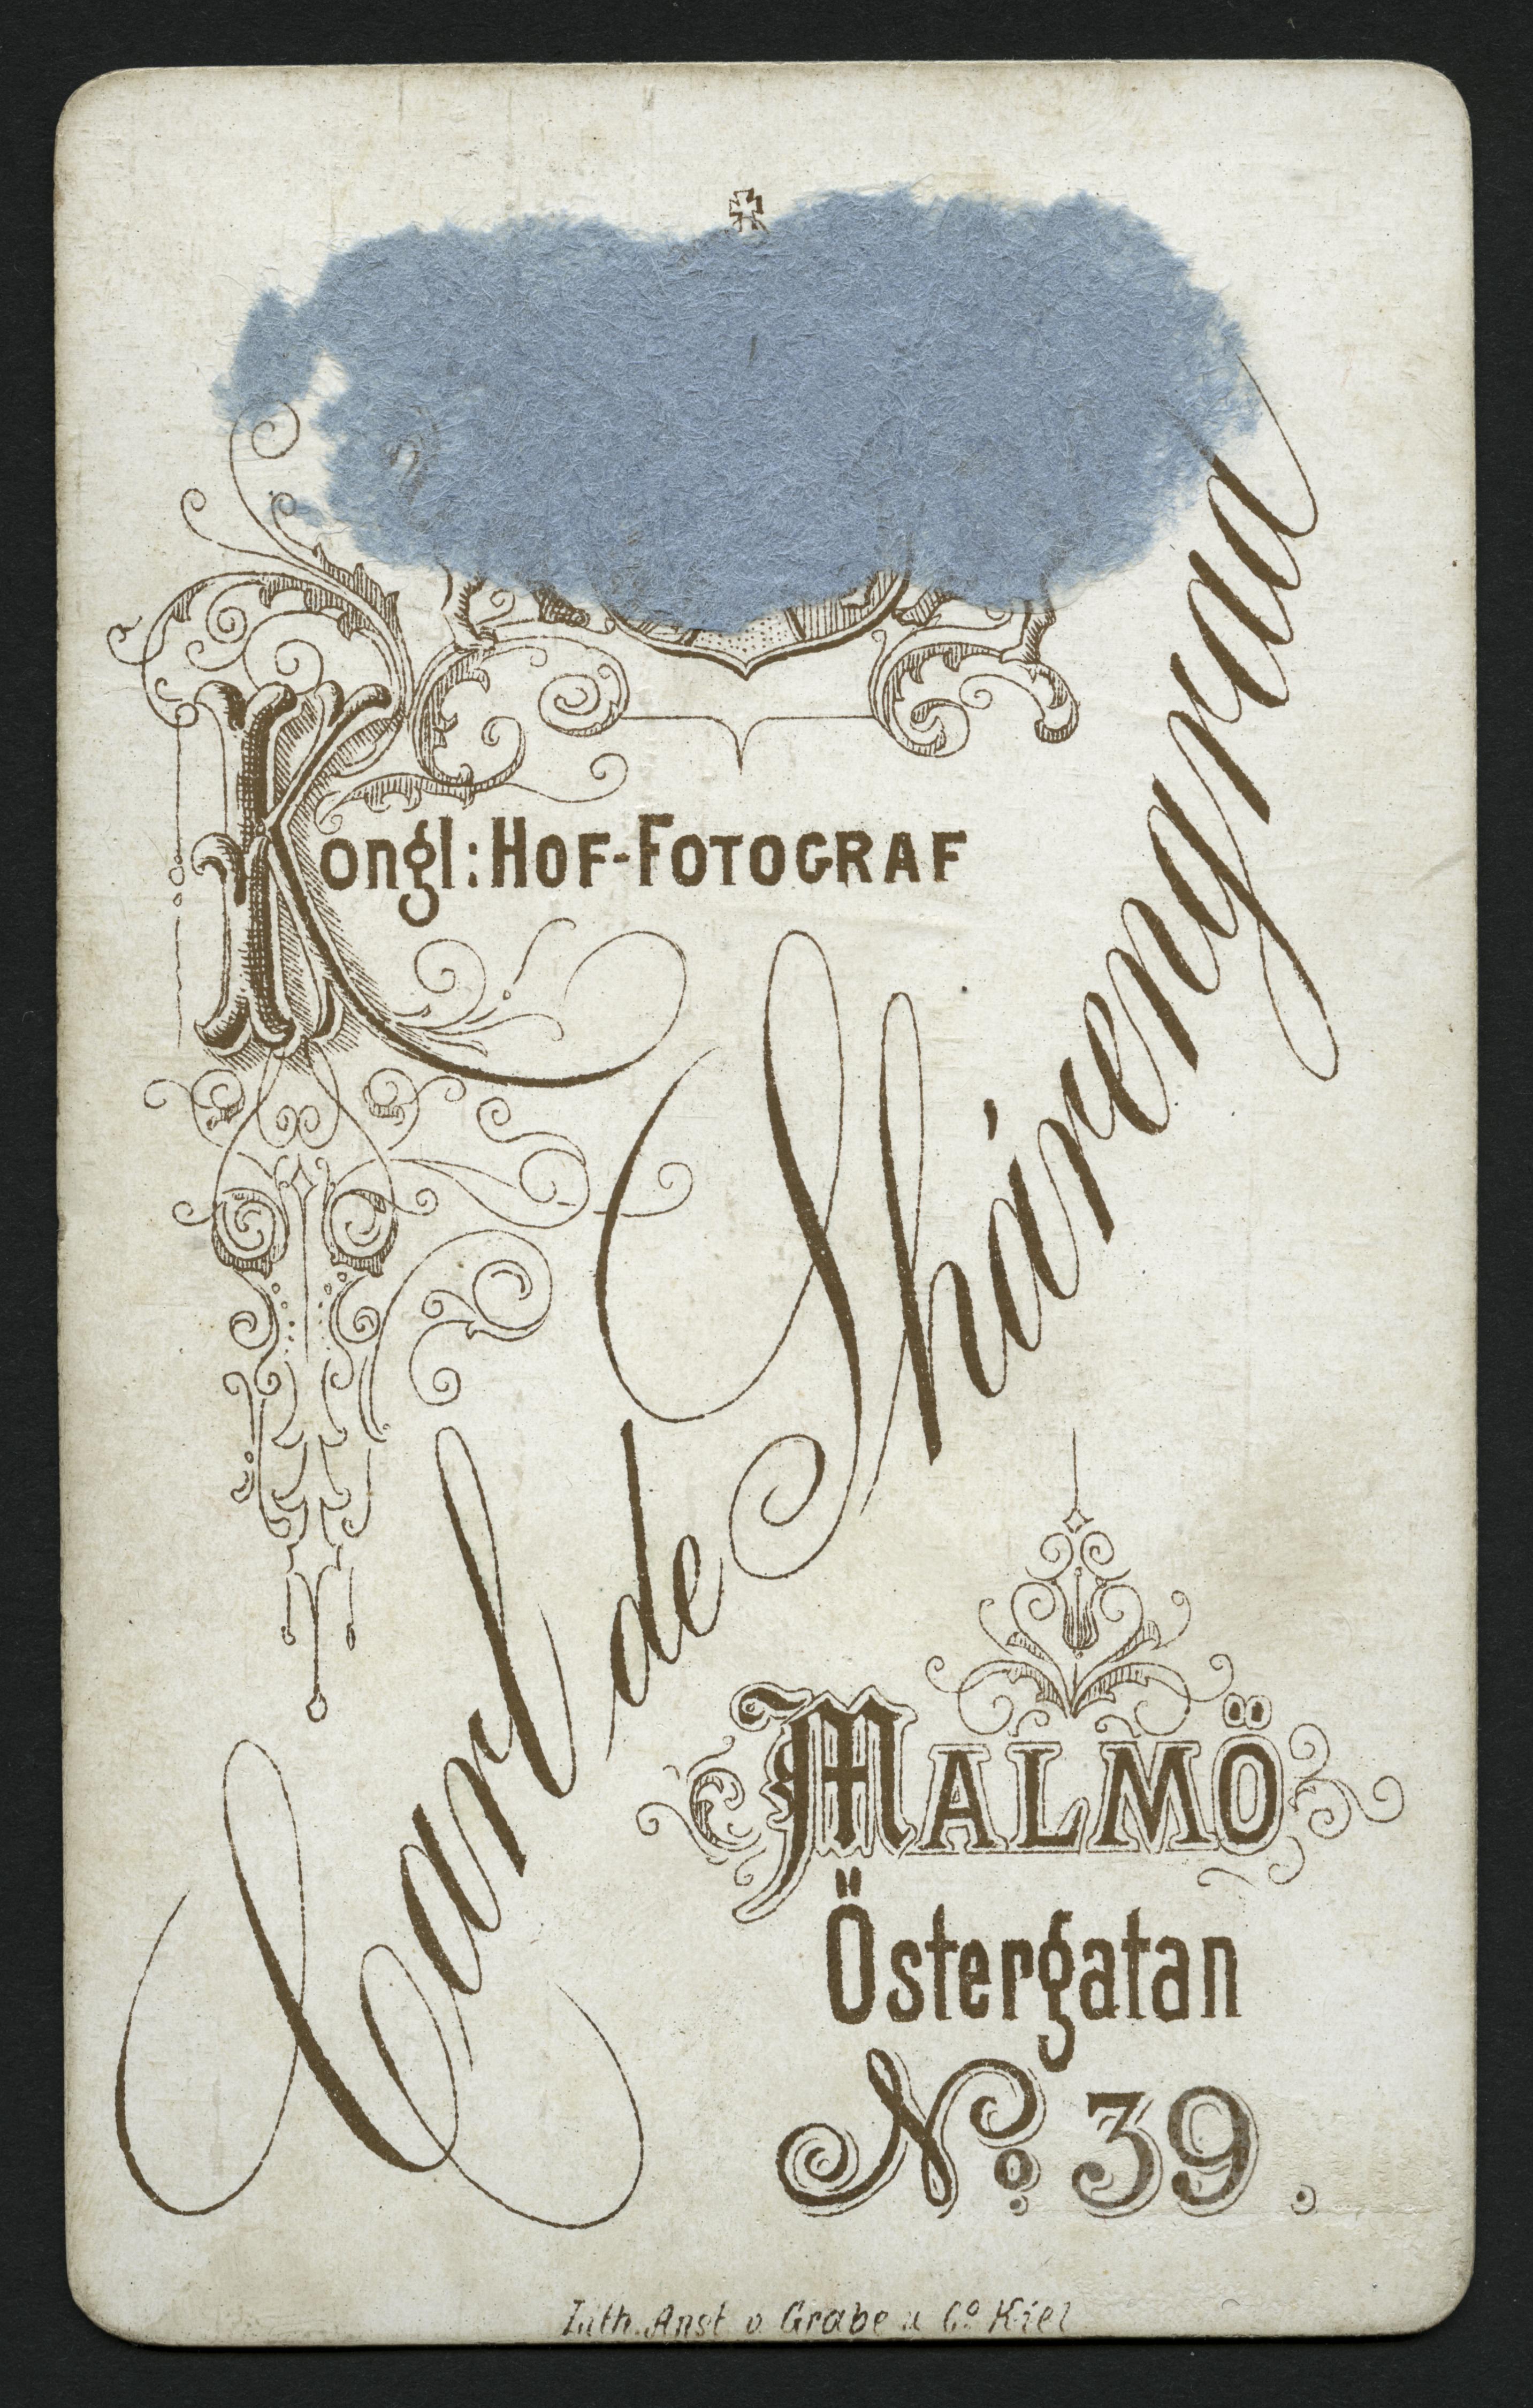 Kongl: HOF-FOTOGRAF
Carl de Shárengrad
MALMÖ
Östergatan
No 39.
Lith. Anst. v. Grabe u. Co Kiel